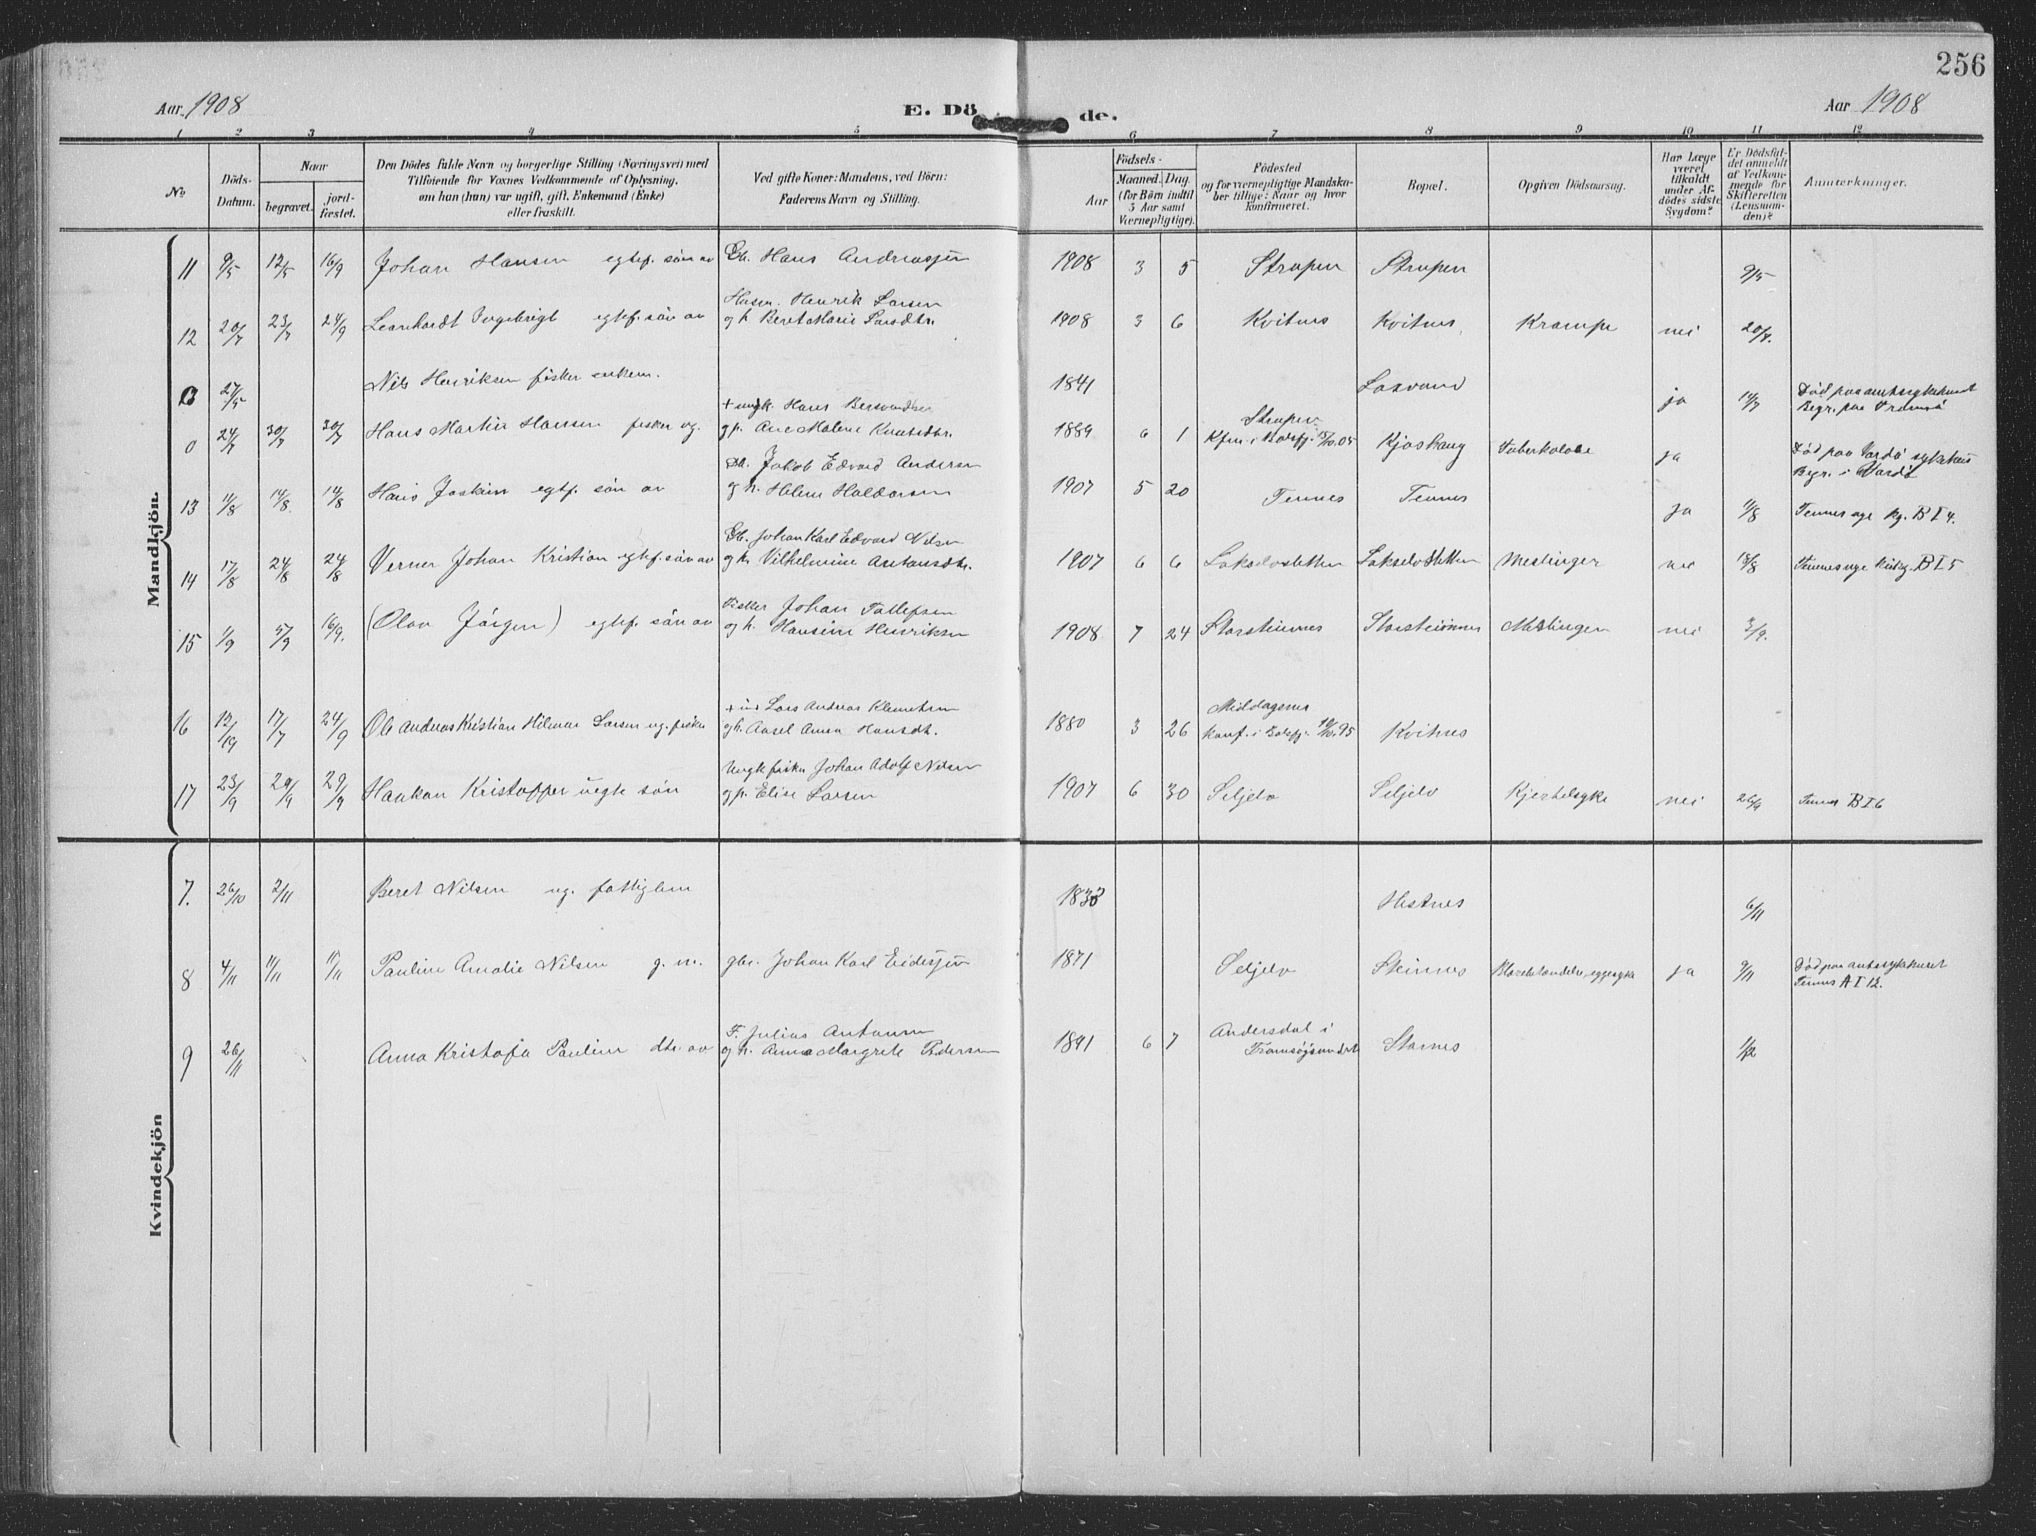 256
Aar 1908 E. Dö de. Aar 1908
1 2 3 4 5 6 7 8 9 10 11 12
No
Döds-Datum.
Naar
begravet.
jord-fæstet.
Den Dödes fulde Navn og borgerlige Stilling (Næringsvei) med
Tilföiende for Voxnes Vedkommende af Oplysning,
om han (hun) var ugift, gift, Enkemand (Enke)
eller fraskilt.
Ved gifte Koner: Mandens, ved Börn:
Faderens Navn og Stilling.
Födsels-
Aar
Maaned. Dag
(for Börn indtil
5 Aar samt
Værnepligtige).
Födested
og for værnepligtige Mandska-
ber tillige: Naar og hvor
konfirmeret.
Bopæl.
Opgiven Dödsaarsag.
Har Læge
været
tilkaldt
under Af-
dödes sidste
Sygdom?
Er Dödsfal-
det anmeldt
af Vedkom-
mende for
Skifteretten
(Lensman-
den)?
Anmærkninger.
Mandkjön.
11 9/5 12/5 16/9 Johan Hansen egtef. sön av Gb. Hans Andreassen 1908 3 5 Strupen Strupen 9/5
Husm. Henrik Larsen
12 20/7 23/7 24/9 Leonhardt Ingebrigt egtef. sön av og h. Beret Marie Larsdtr. 1908 3 6 Kvitnes Kvitnes Krampe nei 20/7.
0 27/5 Nils Henriksen fisker enkem. 1841 Laxvand ja 14/7 Död paa amtssykehuset
Begr. paa Tromsö
+ ungk. Hans
0 24/7 30/7 30/7 Hans Martin Hansen fisker ug. gp. Ane Malene Knutsdtr. 1889 6 1 Strupen
Kfm. i Balsfj. 15/10.05 Kjoshaug Tuberkolose ja Död paa Vardö sykehus
Begr. i Vardö
Jakob Edvard Andersen
13 11/8 14/8 14/8 Hans Joakim egtef. sön av og h. Helene Haldorsen 1907 5 20 Tennes Tennes ja 11/8 Tennes nye kg. B I 4.
Gb. Johan Karl Edvard Nilsen
14 17/8 24/8 24/8 Verner Johan Kristian egtef. sön av og h. Vilhelmine Antonsdtr. 1907 6 6 Lakselvsletten Lakselvsletten Meslinger nei 18/8 Tennes nye kirkeg. B I 5
Fisker Johan Tollefsen
15 1/9 5/9 16/9. (Olav Jörgen) egtef. sön av og h. Hansine Henriksen 1908 7 24 Storsteinnes Storsteinnes Meslinger nei 3/9.
Lars Andreas Klemetsen
16 12/19 17/7 24/9 Ole Andreas Kristian Hilmar Larsen ug. fisker gh. Aasel Anna Hansdt. 1880 3 26 Middagsnes
Konf. i Balsfj. 95 Kvitnes
Ungk fisker Johan Adolf Nilsen
17 23/9 29/9 29/9 Haakon Kristoffer uegte sön gp. Elise Larsen 1907 6 30 Seljelv Seljelv Kjertelsyke nei 26/9 Tennes B I 6
Kvindekjön
7. 26/10 2/11 Beret Nilsen ug. fattiglem Hestnes 6/11
8 4/11 11/11 11/11 Pauline Amalie Nilsen g. m. gbr. Johan Karl Eidesjen 1871 Seljelv Steinnes ja 9/11 Död paa amtssykehuset
Tennes A I 12.
F. Julius Antonsen
9 26/11 Anna Kristofa Pauline dtr. av og h. Anna Margrete Pedersen 1891 6 7 Andersdal i
Tromsöysundet Stornes 1/12